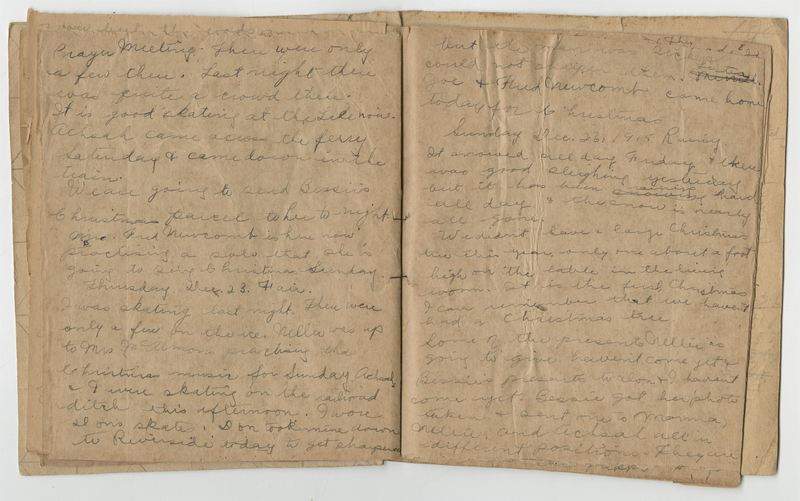 Prayer Meeting. There were only
a few there. Last night there
was quite a crowd there.
It is good skating at the Lake now.
Achsah came across the ferry
Saturday & came down in the
train.
We are going to send Bessie's
Christmas parcel to her to night.
Mrs. Fred Newcomb is here now
practising a solo that she is
going to sing Christmas Sunday
Thursday, Dec. 23. Fair.
I was skating last night. There were
only a few on the ice. Nellie was up
to Mrs practising the
Christmas music for Sunday. Achsah
& I were skating on the railroad
ditch this afternoon. I wore
Don's skates. Don took mine down
to Riverside today to get sharpened
but the man was sick
could not sharpen them.
Joe & Fred Newcomb came home
today for Christmas
Sunday Dec. 26, 1915 Rainy
It snowed all day Friday & there
was good sleighing yesterday
but it has been raining hard
all day & the snow is nearly
all gone.
We didn't have a large Christmas
tree this year, only one about a foot
high on the table in the living
room. It is the first Christmas
I can remember that we haven't
had a Christmas tree
Some of the presents Nellie is
going to give haven't come yet &
Bessie's presents to Don & I haven't
come yet. Bessie got her photo
taken & sent one to Mamma,
Nellie, and Achsah all in
different positions. They are